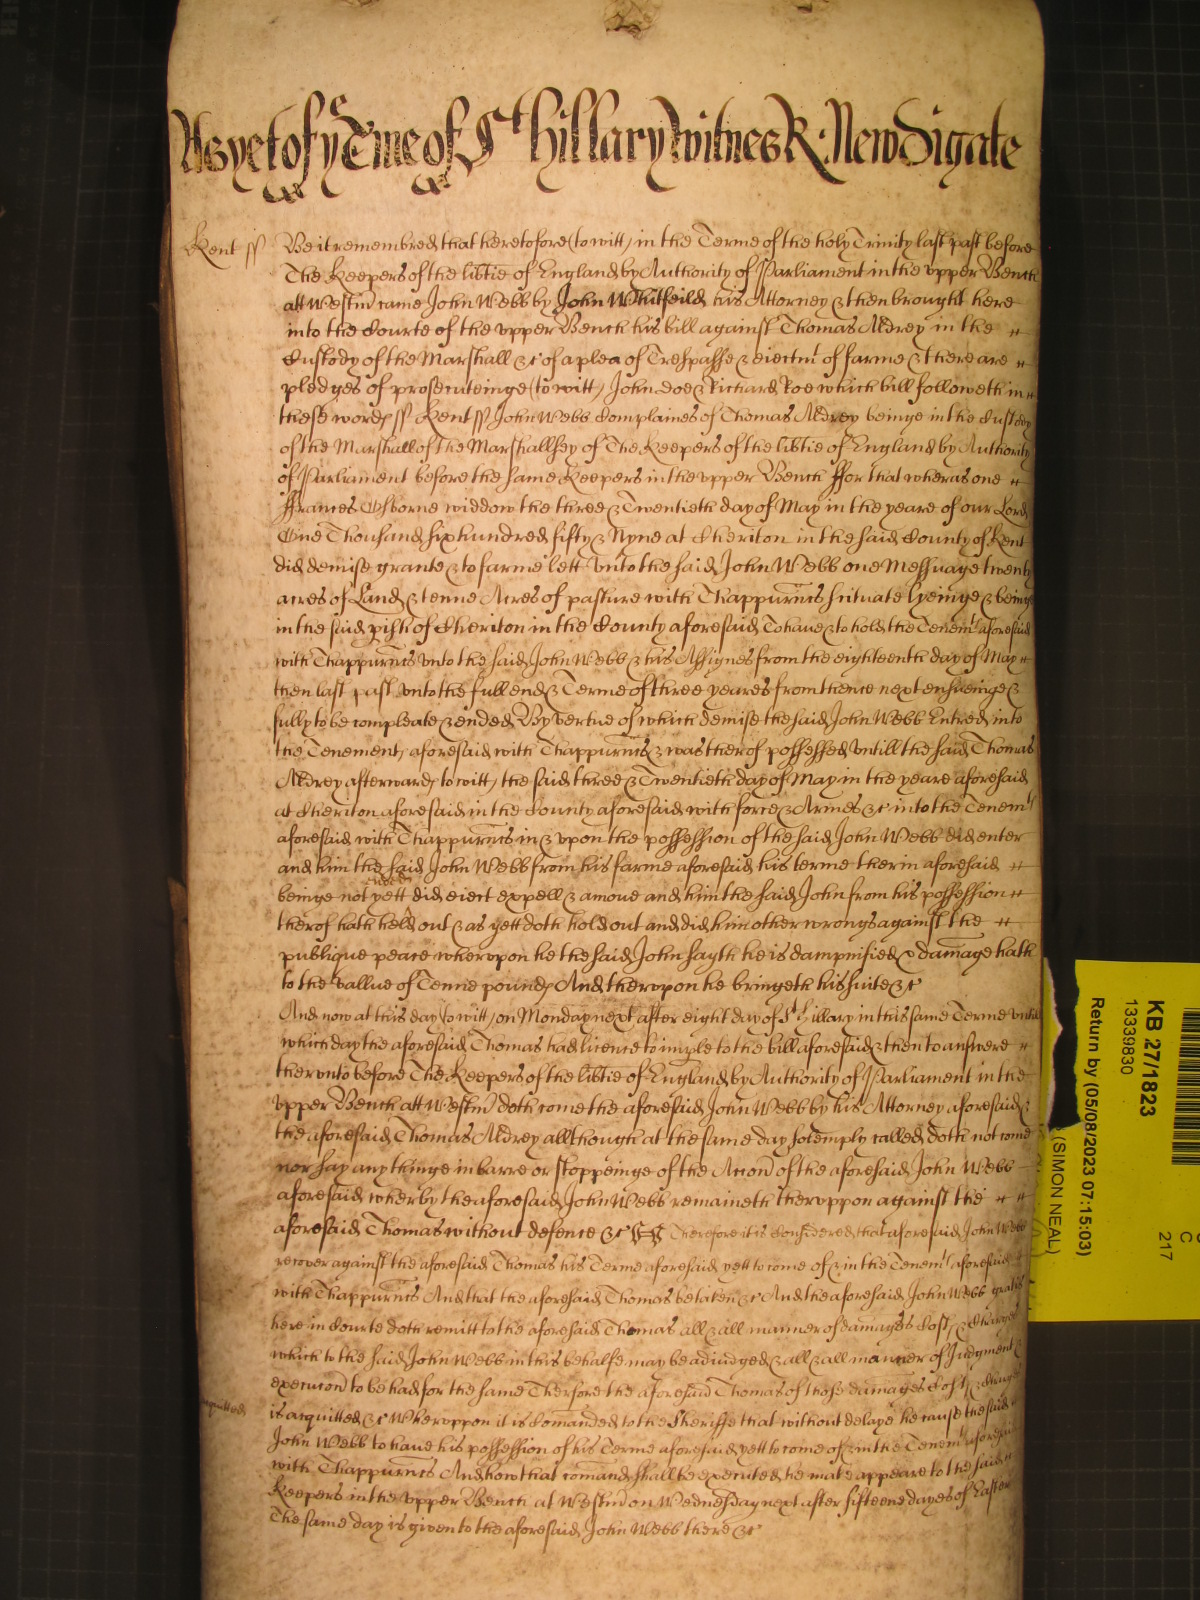 As yet of ye Tme of St hillary Witnes R: NewDigate
Kent ss Be it remembred that heretofore (to witt) in the Terme of the holy Trinity last past before
The Keepers of the libtie of England by Authority of Parliament in the upper Bench
att Westm came John Webb by John Whitfeild his Attorney & then brought here
into the Courte of the upper Bench his bill against Thomas Aldrey in the
Custody of the Marshall &c of a plea of Trespasse & eiectmt of farme & there are
pledges of prosecuteinge (to witt) John Doe & Richard Roe which bill followeth in
these words ss Kent ss John Webb Complaines of Thomas Aldrey beinge in the Custody
of the Marshall of the Marshallsey of The Keepers of the libtie of England by Authority
of Parliament before the same Keepers in the upper Bench ffor that wheras one
ffrances Osborne widdow the three & Twentieth day of May in the yeare of our Lord
One Thousand six hundred fifty & Nyne at Cheriton in the said County of Kent
did demise grante & to farme lett unto the said John Webb one Messuage twenty
acres of Land & tenne Acres of pasture with Thappurtncs scituate lyeinge & beinge
in the said pish of Cheriton in the County aforesaid To have & to hold the Tenemts aforesaid
with Thappurtncs unto the said John Webb & his Assignes from the eighteenth day of May
then last past unto the full end & Terme of three yeares from thence next ensueinge &
fully to be compleate & ended By vertue of which demise the said John Webb Entred into
the Tenements aforesaid with Thappurtncs & was therof possessed untill the said Thomas
Aldrey afterwards to witt, the said three & Twentieth day of May in the yeare aforesaid
at Cheriton aforesaid in the County aforesaid with force & Armes &c into the Tenemts
aforesaid with Thappurtncs in & upon the possession of the said John Webb did enter
and him the said John Webb from his farme aforesaid his terme therin aforesaid
beinge not yett ended did eiect expell & amove and him the said John from his possession
therof hath held out & as yett doth hold out and did him other wrongs against the
publique peace wherupon he the said John sayth he is dampnified & damage hath
to the vallue of Tenne pounds And therupon he bringeth his suite &c
And now at this day (to witt) on Monday next after eight day of St hillary in this same Terme untill
which day the aforesaid Thomas had licence to imple to the bill aforesaid & then to answere
therunto before The Keepers of the libtie of England by Authority of Parliament in the
upper Bench att Westm doth come the aforesaid John Webb by his Attorney aforesaid &
the aforesaid Thomas Aldrey allthough at the same day solemply called doth not come
nor say any thinge in barre or stoppeinge of the Accon of the aforesaid John Webb
aforesaid wherby the aforesaid John Webb remaineth theruppon against the
aforesaid Thomas without defence &c Therefore it is Considered that aforesaid John Webb
recover against the aforesaid Thomas his Terme aforesaid yett to come of & in the Tenemts aforesaid
with Thappurtncs And that the aforesaid Thomas be taken &c And the aforesaid John Webb gratis
here in Courte doth remitt to the aforesaid Thomas all & all manner of damages Costs & Charges
which to the said John Webb in this behalfe may be adiudged & all & all manner of Judgment &
execucon to be had for the same Therfore the aforesaid Thomas of those damages Costs & Charges
acquitted is acquitted &c Wheruppon it is Comanded to the Sheriffe that without delaye he cause the said
John Webb to have his possession of his Terme aforesaid yett to come of & in the Tenemts aforesaid
with Thappurtncs And how that comand shall be executed he make appeare to the said
Keepers in the upper Bench at Westm on Wednesday next after fifteene dayes of Easter
The same day is given to the aforesaid John Webb there &c
KB 27/1823
13339830
Return by (05/08/2023 07:15:03)
(SIMON NEAL)
C
217